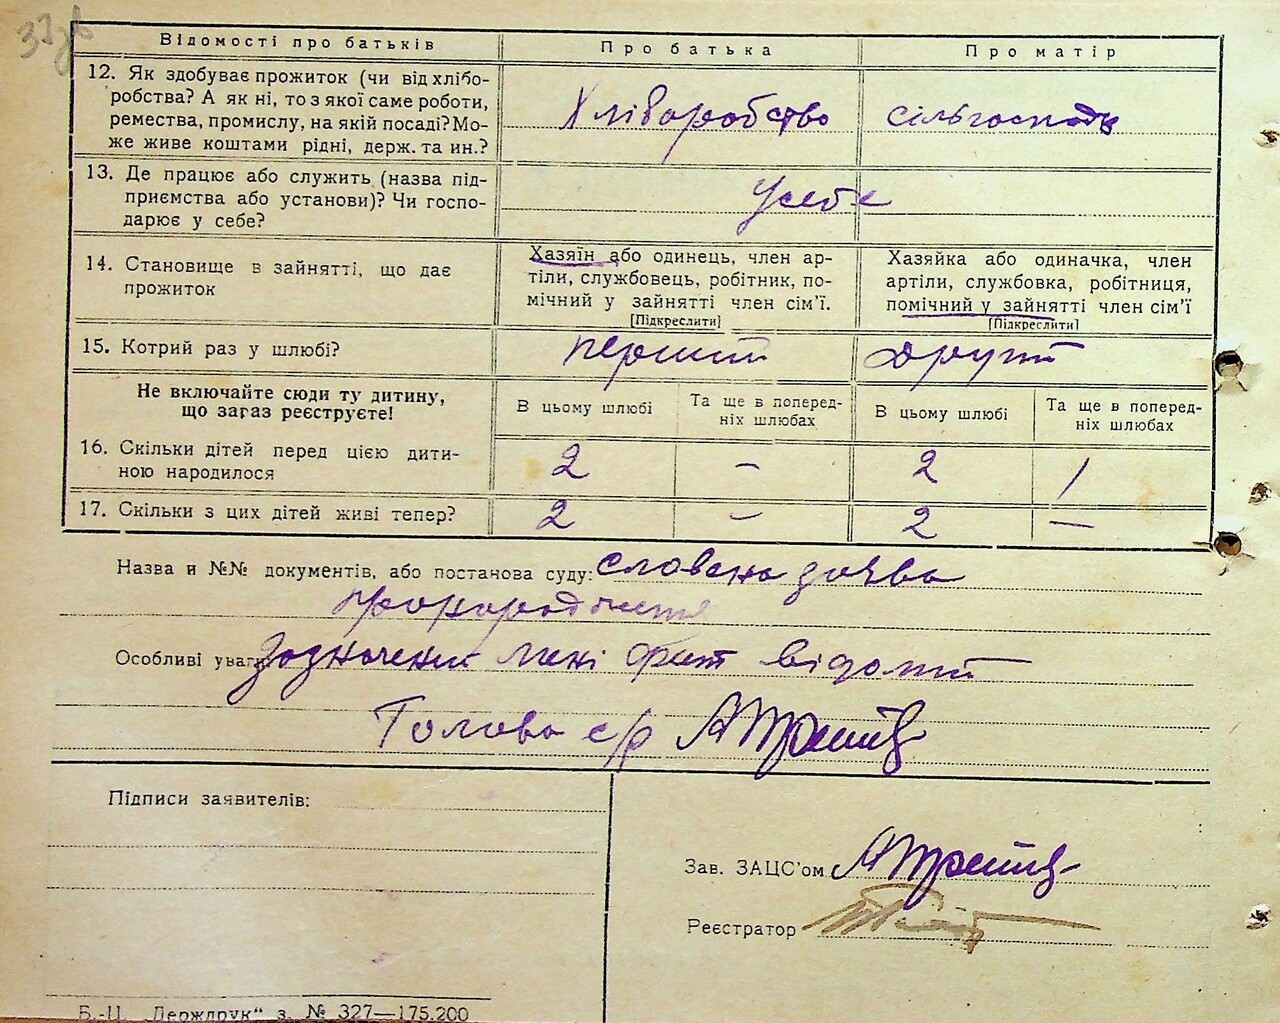 37зв
Відомості про батьків
Про батька
Про матір
12. Як здобуває прожиток (чи від хлібо-
робства? А як ні, то з якої саме роботи,
ремества, промислу, на якій посаді? Мо-
же живе коштами рідні, держ. та ин.?
Хліборобство
сільгоспода
13. Де працює або служить (назва під-
приємства або установи)? Чи госпо-
дарює у себе?
Усебе
14. Становище в зайнятті, що дає
прожиток
Хазяїн або одинець, член ар-
тіли, службовець, робітник, по-
мічний у зайнятті член сім'ї.
[Підкреслити]
Хазяйка або одиначка, член
артіли, службовка, робітниця,
помічний у зайнятті член сім'ї
[Підкреслити]
15. Котрий раз у шлюбі?
перший
другий
Не включайте сюди ту дитину,
що загаз реєструєте!
В цьому шлюбі
Та ще в поперед-
ніх шлюбах
В цьому шлюбі
Та ще в поперед-
ніх шлюбах
16. Скільки дітей перед цією дити-
ною народилося
2 – 2 1
17. Скільки з цих дітей живі тепер?
2 – 2 –
Назва и №№ документів, або постанова суду: словесна заява
про народження
Особливі уваги Зазначений мені факт відомий
Голова с/р
Підписи заявителів:
Зав. ЗАЦС'ом
Реєстратор
Б.-Ц. „Держдрук“ з. № 327—175.200